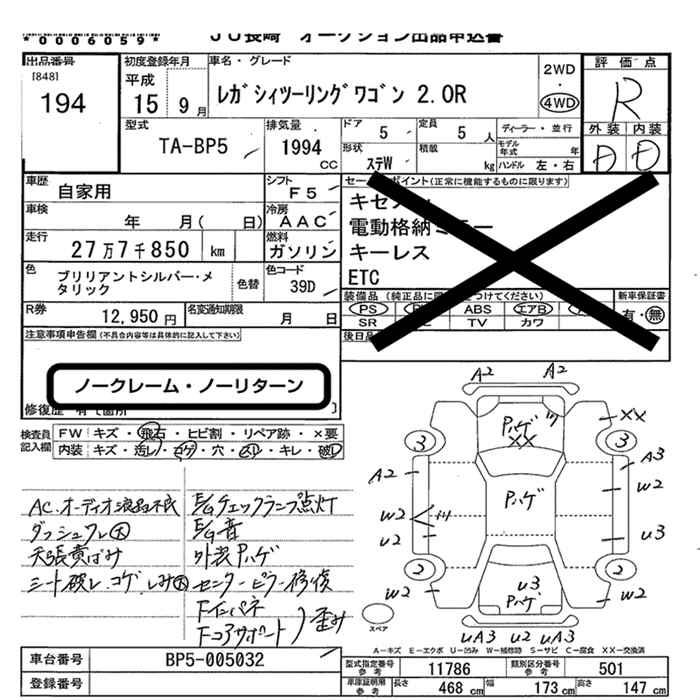 *0006059* JU長崎 オークション出品申込書
出品番号 [848] 194
初度登録年月 平成 15年 9月
車名・グレード レガシィツーリングワゴン 2.0R
2WD・4WD
評価点 R
外装 D 内装 D
型式 TA-BP5
排気量 1994 CC
ドア 5
定員 5 人
ディーラー・並行
形状 ステW
積載 kg
モデル年式 年
ハンドル 左・右
車歴 自家用
シフト F5
車検 年 月( 日)
冷房 AAC
走行 27万7千850 km
燃料 ガソリン
色 ブリリアントシルバー・メタリック
色替
色コード 39D
R券 12,950円
名変通知期限 月 日
セールスポイント(正常に機能するものに限ります)
電動格納ミラー
キーレス
ETC
装備品(純正品に つけてください)
PS ABS エアB
SR TV カワ
新車保証書 有・無
後日
注意事項申告欄(不具合内容等は具体的に記入して下さい)
ノークレーム・ノーリターン
修復歴 有( 箇所 )
検査員記入欄
FW キズ・飛石・ヒビ割・リペア跡・×要
内装 キズ・汚レ・コゲ・穴・スレ・キレ・破レ
AC.オーディオ液晶不良
ダッシュワレ大
天張黄ばみ
シート破レ.コゲ.しみ大
E/Gチェックランプ点灯
E/G音
外装Pハゲ
センターピラー修復
Fインパネ
Fコアサポート
歪み
A2 A2
Pハゲ
XX
XX
3 3
A2 A3
W2 W2
Pハゲ
U2 U3
2 2
W2 W2
U3
Pハゲ
スペア
UA3 U2 UA3
A-キズ E-エクボ U-凹み W-補修跡 S-サビ C-腐食 XX-交換済
車台番号 BP5-005032
登録番号
型式指定番号 参考 11786
類別区分番号 参考 501
車庫証明用 参考 長さ 468 cm 幅 173 cm 高さ 147 cm